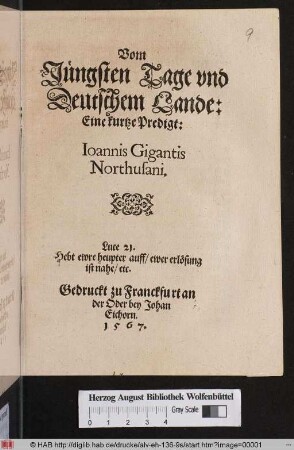 9
Vom
Jüngsten Tage vnd
Deutschem Lande:
Eine kurtze Predigt:
Ioannis Gigantis
Northusani.
Luce 21.
Hebt ewre heupter auff/ ewer erlösung
ist nahe/ etc.
Gedruckt zu Franckfurt an
der Oder bey Johan
Eichorn.
1567.
Herzog August Bibliothek Wolfenbüttel
Gray Scale
© HAB http://diglib.hab.de/drucke/alv-eh-136-9s/start.htm?image=00001